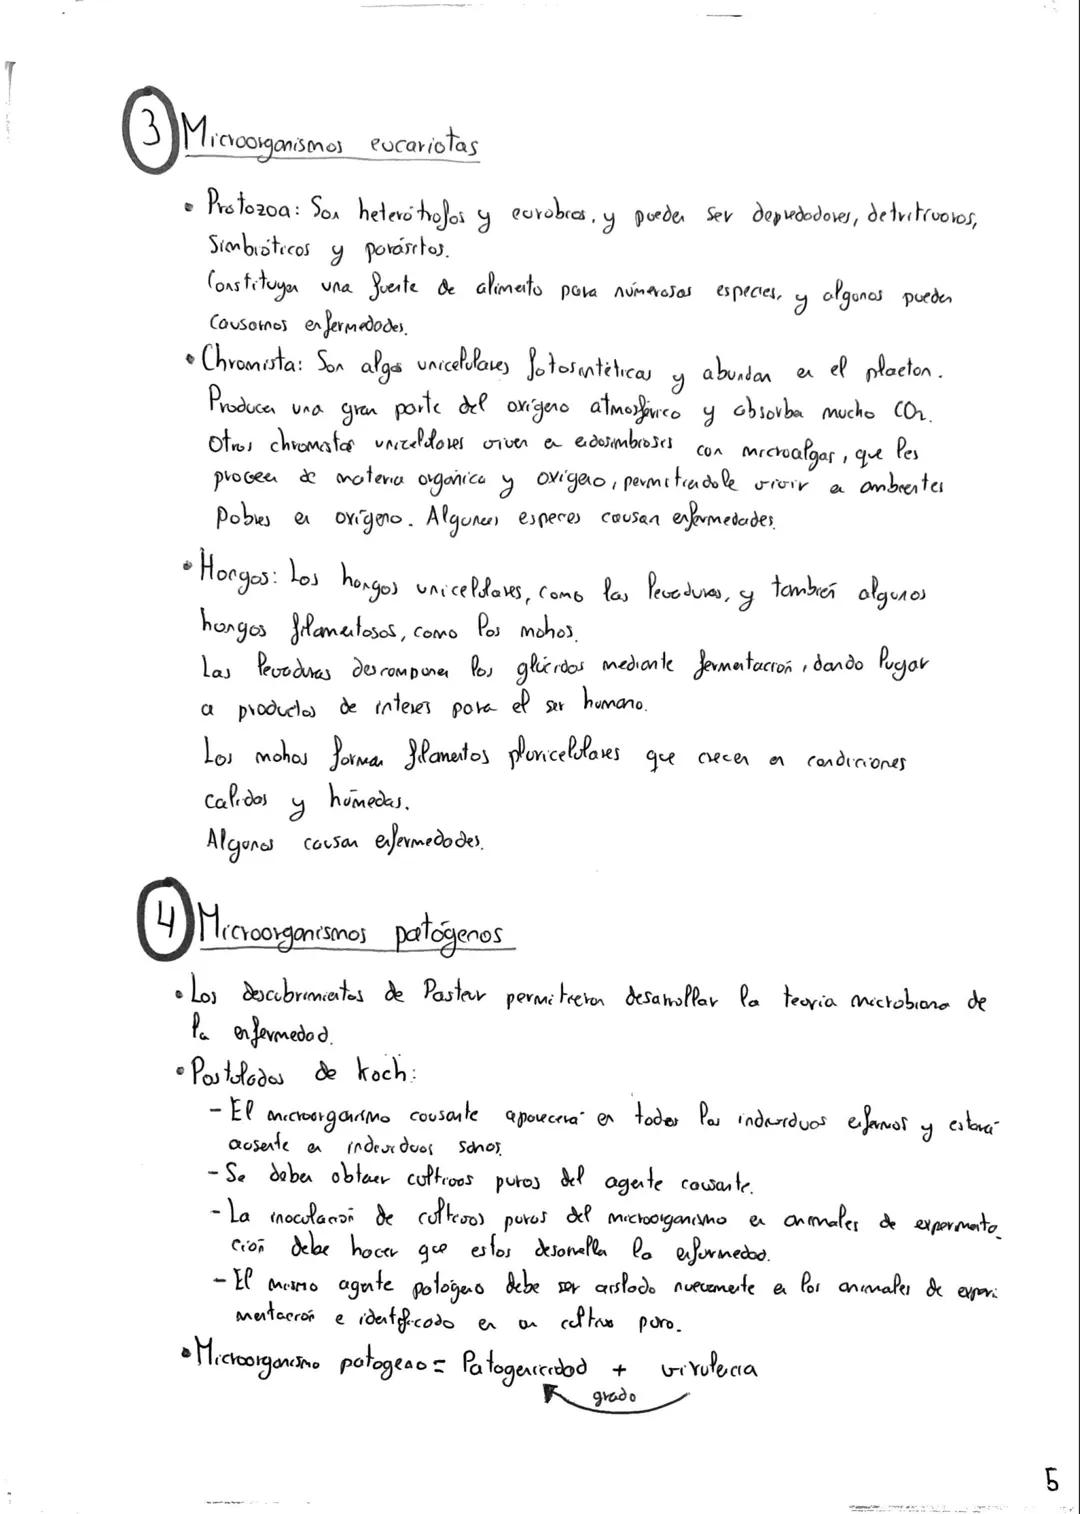 3 Microorganismos eucariotas
• Protozoa: Son heterótrofos y aerobios, y pueden ser depredadores, detritívoros,
Simbióticos y parásitos.
Constituyen una fuente de alimento para numerosas especies, y algunos pueden
causarnos enfermedades.
• Chromista: Son algas unicelulares fotosintéticas y abundan en el plancton.
Producen una gran parte del oxígeno atmosférico y absorben mucho CO2.
Otros chromistas unicelulares viven en endosimbiosis con microalgas, que les
proveen de materia orgánica y oxígeno, permitiendole vivir en ambientes
Pobres en oxígeno. Algunas especies causan enfermedades.
• Hongos: Los hongos unicelulares, como las levaduras, y también algunos
hongos filamentosos, como los mohos.
Las levaduras descomponen los glúcidos mediante fermentación, dando lugar
a productos de interes para el ser humano.
Los mohos forman filamentos pluricelulares que crecen en condiciones
calidas y húmedas.
Algunos causan enfermedades.
4 Microorganismos patógenos
• Los descubrimientos de Pasteur permitieron desarrollar la teoria microbiana de
la enfermedad.
• Postulados de Koch:
- El microorganismo causante aparecerá en todos los individuos enfermos y estará
ausente en individuos sanos.
- Se deben obtener cultivos puros del agente causante.
- La inoculación de cultivos puros del microorganismo en animales de experimenta_
ción debe hacer que estos desarrollen la enfermedad.
- El mismo agente patógeno debe ser aislado nuevamente en los animales de experi
mentación e identificado en un cultivo puro.
• Microorganismo patogeno = Patogenicidad + virulencia
grado
5